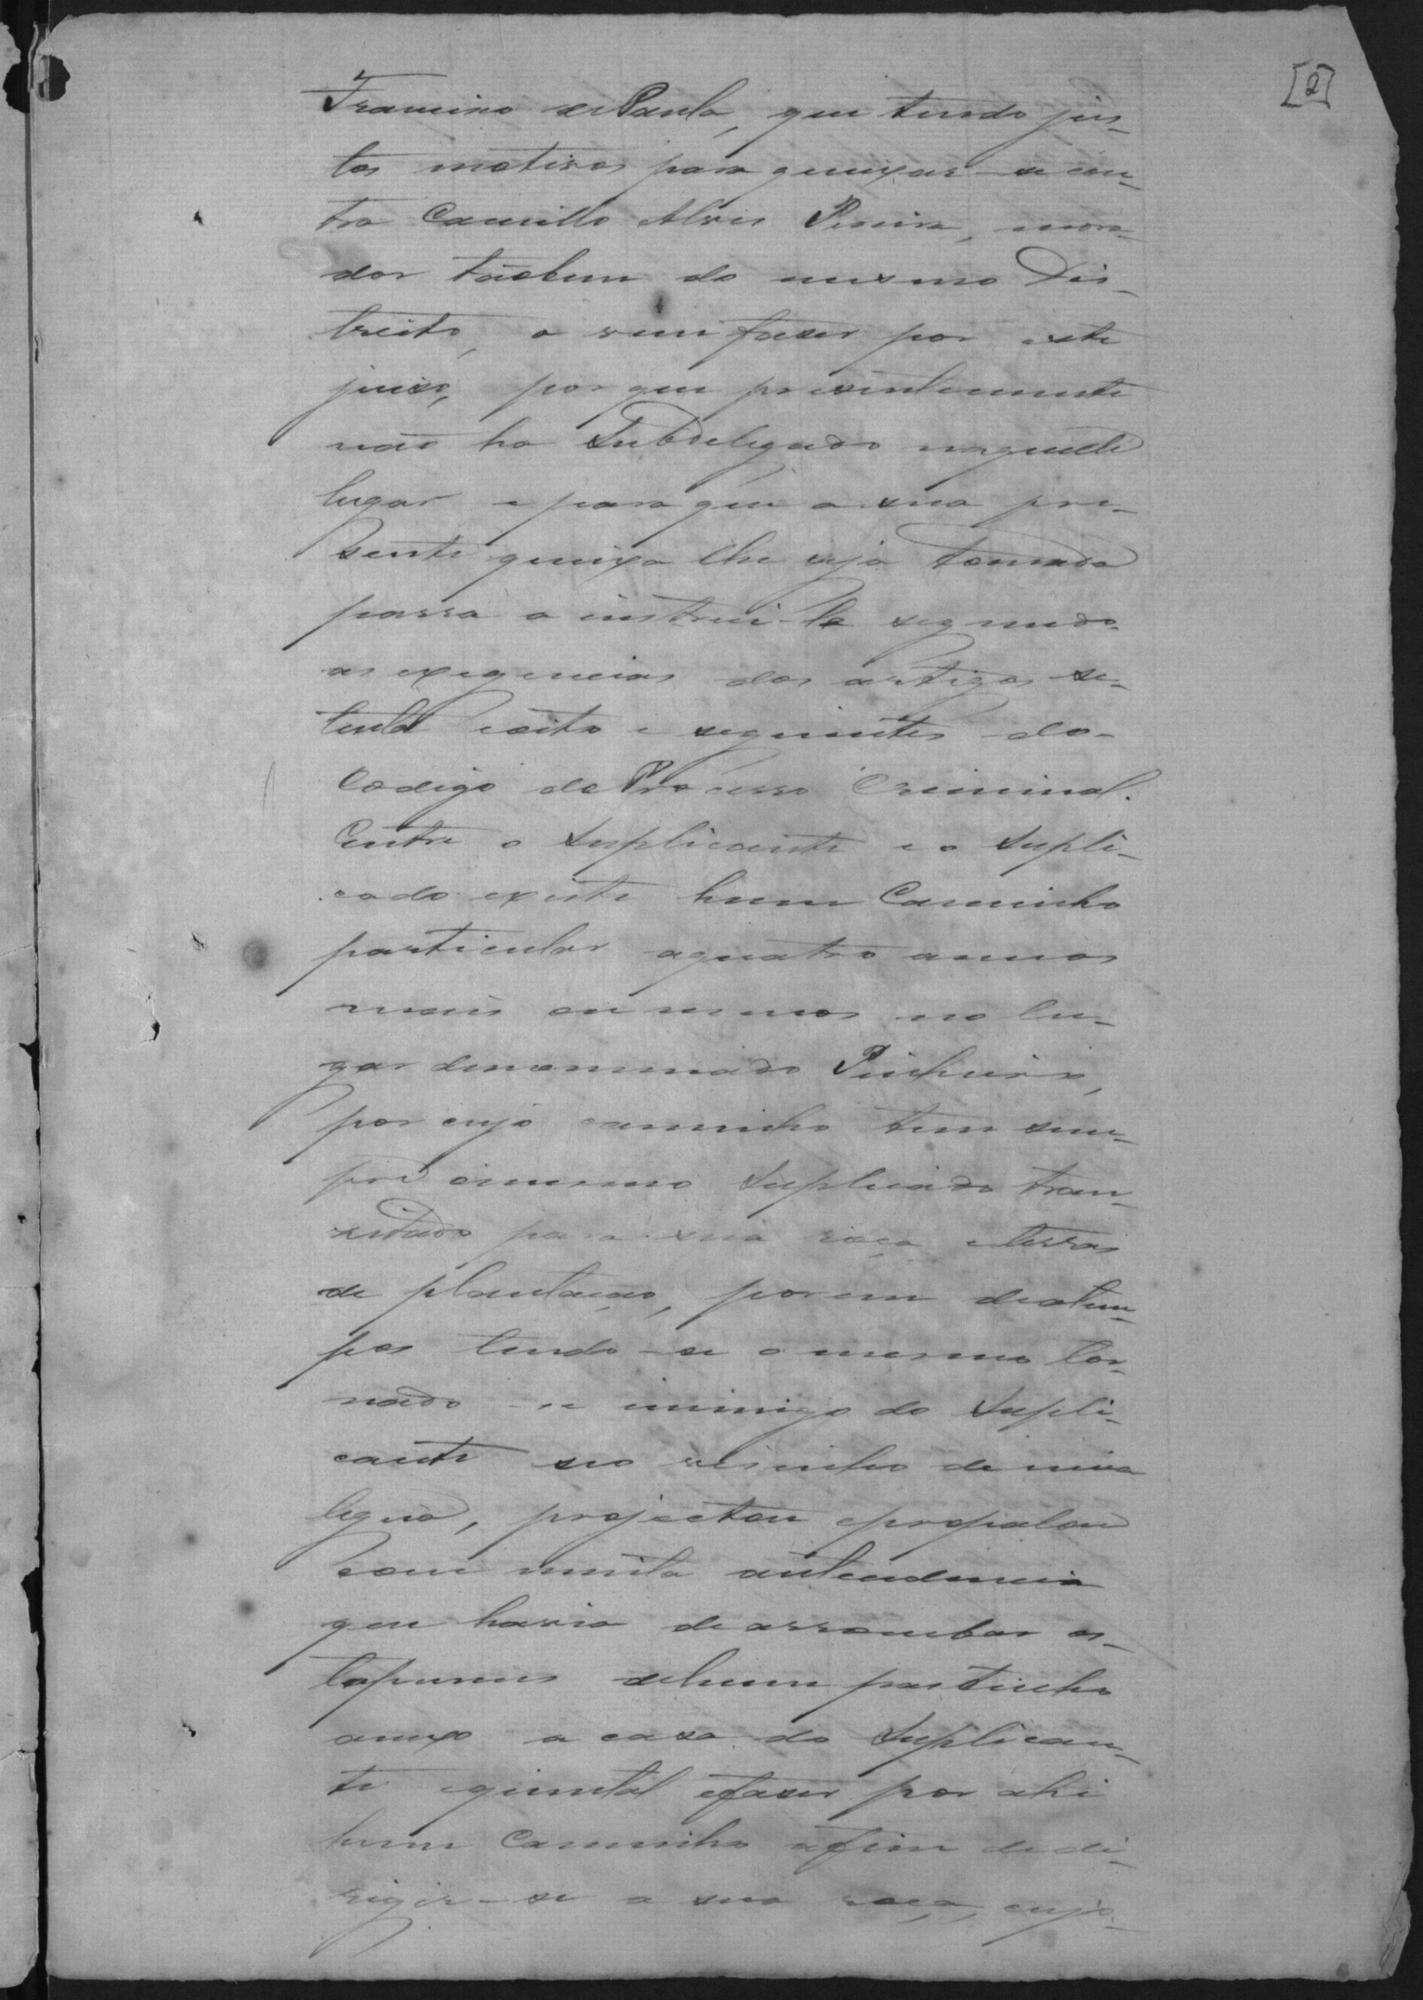 [2]
Francisco de Paula, que tendo jus-
tos motivos para queixar-se con-
tra Camillo Alves Pereira, mora-
dor tãobem do mesmo Dis-
tricto, o vem fazer por este
juizo, por que presentemente
não ha Subdelegado naquelle
lugar e para que a sua pre-
sente queixa lhe seja tomada
passa a instrui-la segundo
as exigencias dos artigos se-
tenta eoito e seguintes do
Codigo do Processo Criminal.
Entre o Suplicante e o Supli-
cado existe hum Caminho
particular aquatro annos
mais ou menos no lu-
gar denominado Pinheiro,
por cujo caminho tem sem-
pre omesmo Suplicado tran-
zitado para sua roça eterras
de plantação, porem deatem-
pos tendo-se o mesmo tor-
nado-se inimigo do Supli-
cante seo vesinho de meia
legua, projectou epropalou
com muita antecedencia
que havia dearrombar os
tapumes dehum pastinho
anexo a caza do Suplican-
te equintal efazer por ahi
hum Caminho afim dedi-
rigir-se a sua roça, cujo